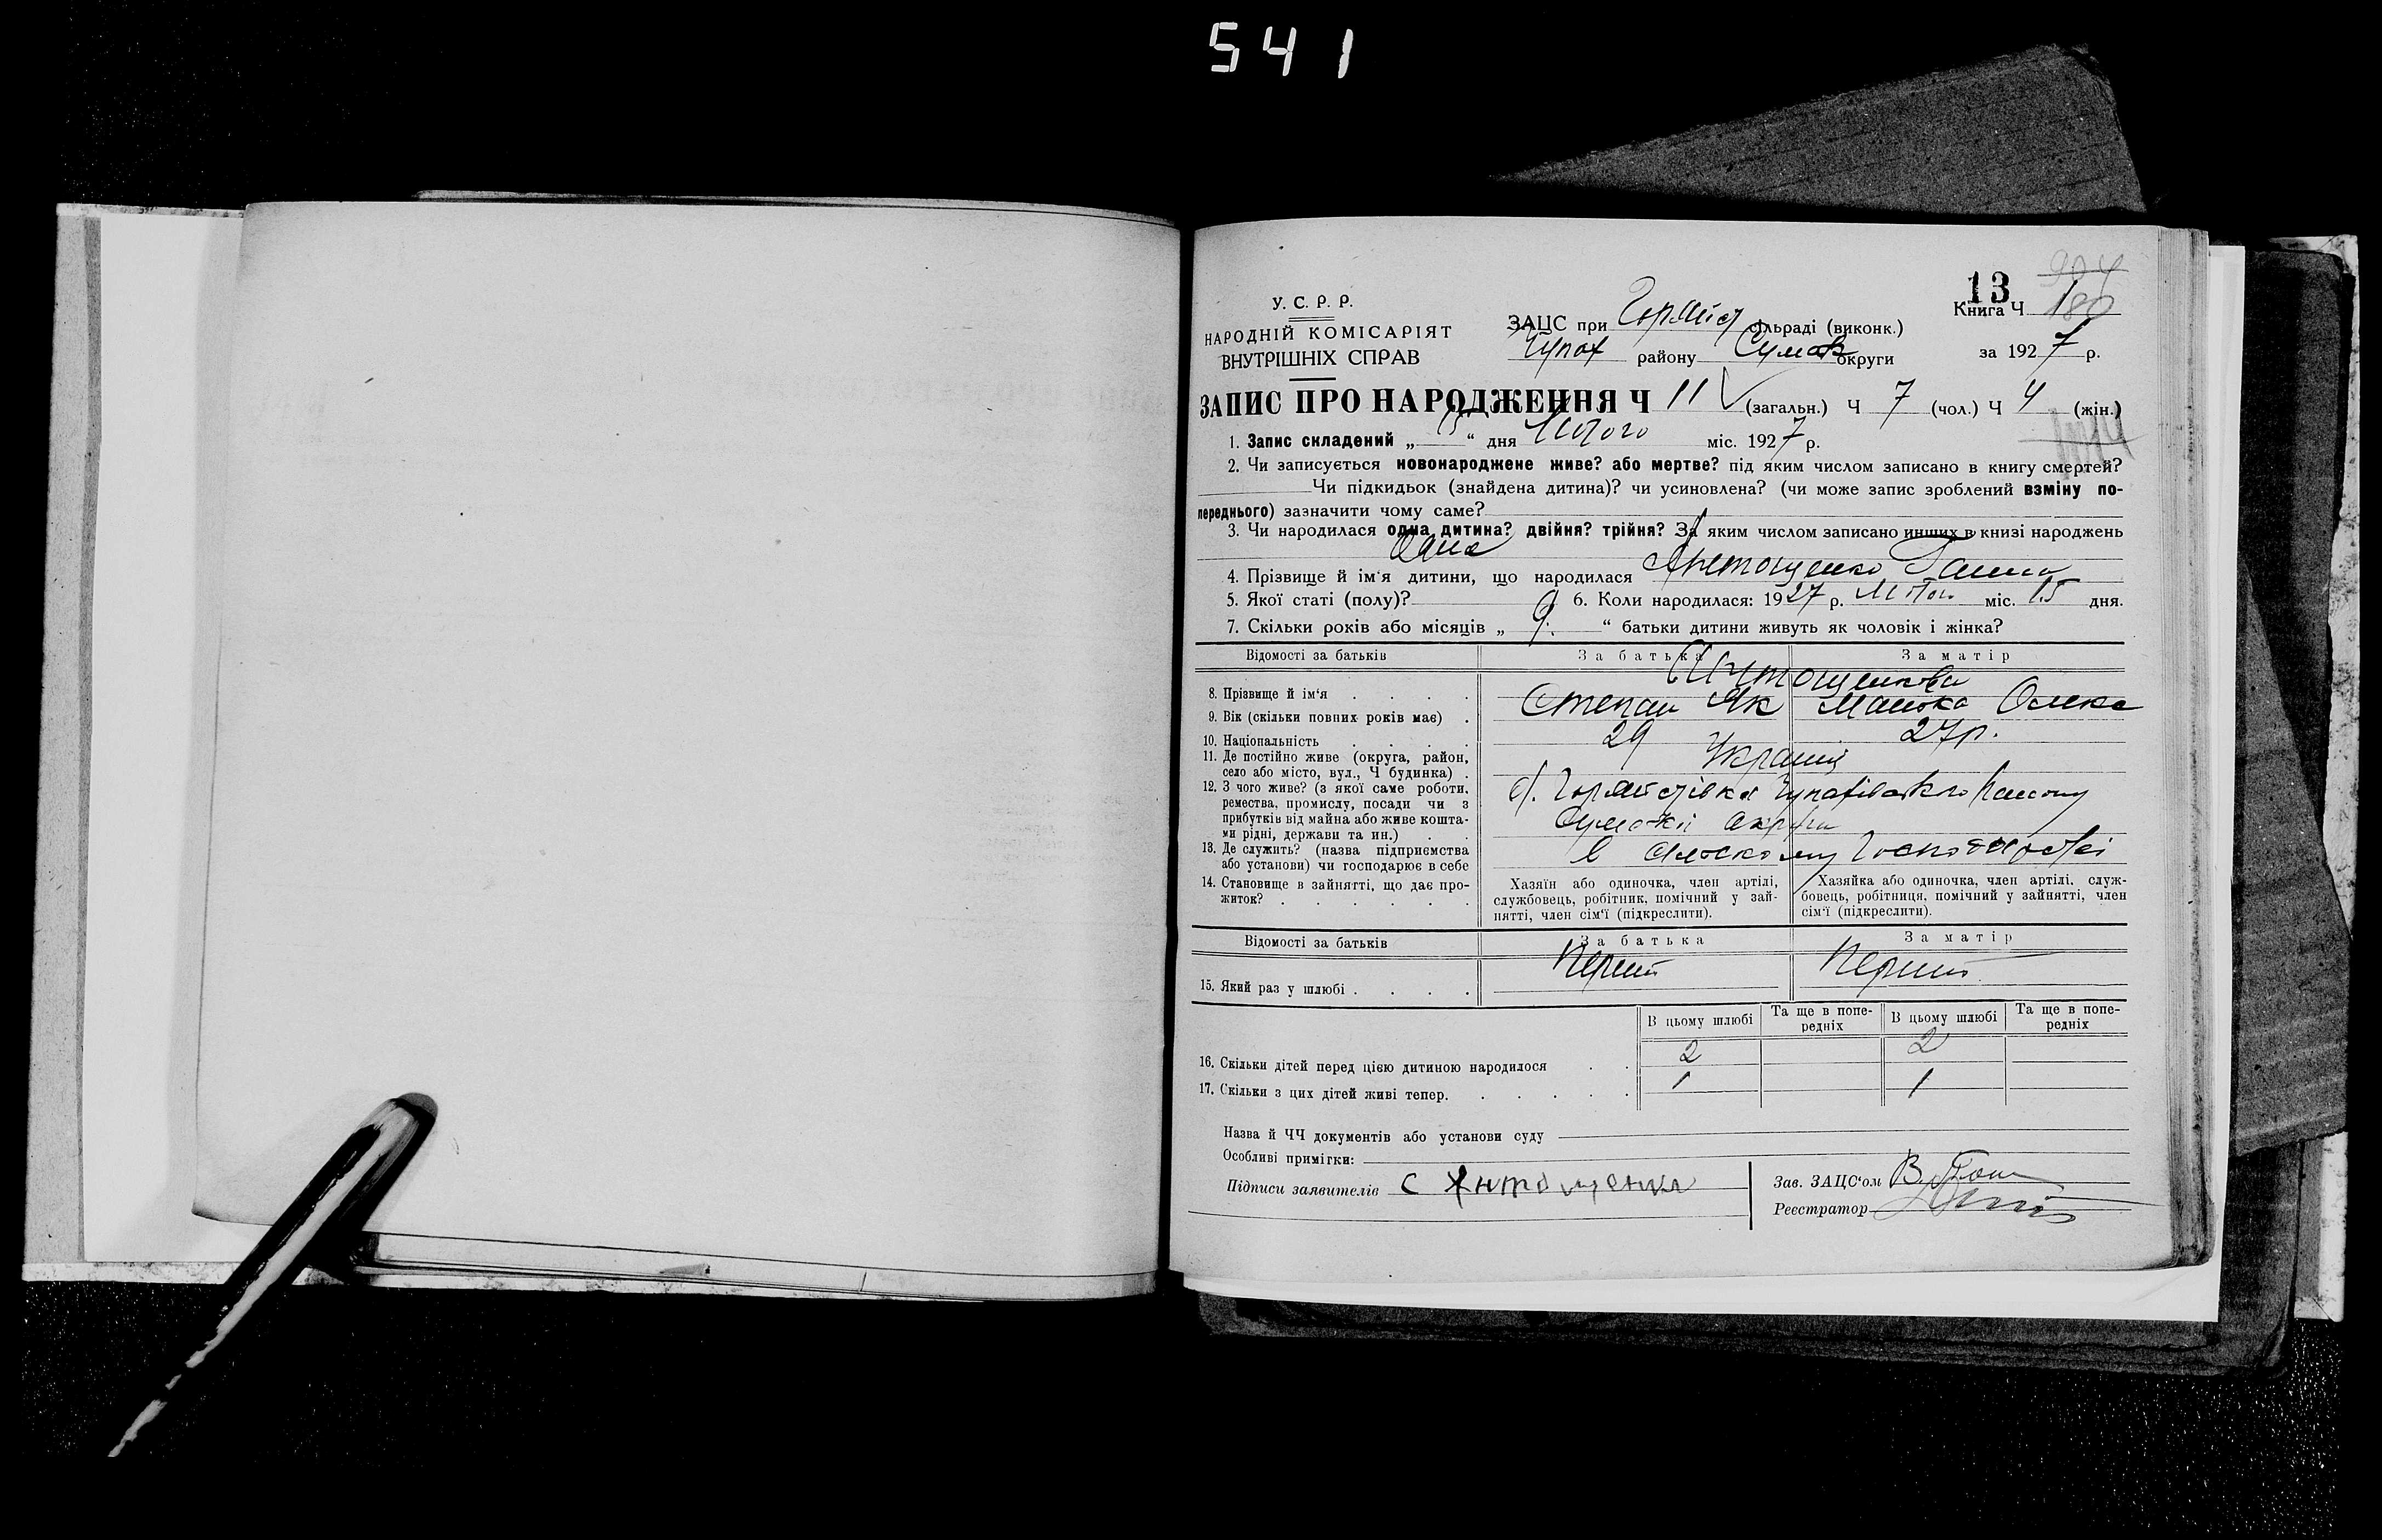 541
13
У. С. Р. Р.
НАРОДНІЙ КОМІСАРІЯТ
ВНУТРІШНІХ СПРАВ
ЗАЦС при сільраді (виконк.)
Чупах району Сумск округи
Книга Ч 180
за 1927 р.
ЗАПИС ПРО НАРОДЖЕННЯ Ч 11 (загальн.) Ч 7 (чол.) Ч 4 (жін.)
1. Запис складений „15“ дня Лютого міс. 1927 р.
2. Чи записується новонароджене живе? або мертве? під яким числом записано в книгу смертей?
Чи підкидьок (знайдена дитина)? чи усиновлена? (чи може запис зроблений взміну по-
переднього) зазначити чому саме?
3. Чи народилася одна дитина? двійня? трійня? За яким числом записано инших в книзі народжень
Одна
4. Прізвище й ім‘я дитини, що народилася Антощенко Ганна
5. Якої статі (полу)? 6. Коли народилася: 1927 р. міс. 15 дня.
7. Скільки років або місяців „9“ батьки дитини живуть як чоловік і жінка?
Відомості за батьків За батька За матір
8. Прізвище й ім‘я . . . . Антощенкови
Степан Як Оникс
9. Вік (скільки повних років має) . 29 27р.
10. Національність . . . . Україн
11. Де постійно живе (округа, район,
село або місто, вул., Ч будинка) .
12. З чого живе? (з якої саме роботи,
ремества, промислу, посади чи з
прибутків від майна або живе кошта-
ми рідні, держави та ин.) . .
13. Де служить? (назва підприємства
або установи) чи господарює в себе
14. Становище в зайнятті, що дає про-
житок? . . . . . .
Хазяїн або одиночка, член артілі,
службовець, робітник, помічний у зай-
нятті, член сім‘ї (підкреслити).
Хазяйка або одиночка, член артілі, служ-
бовець, робітниця, помічний у зайнятті, член
сім‘ї (підкреслити).
Відомості за батьків За батька За матір
15. Який раз у шлюбі . . . . Перший Перший
В цьому шлюбі Та ще в попе-
редніх В цьому шлюбі Та ще в попе-
редніх
16. Скільки дітей перед цією дитиною народилося . . 2 2
17. Скільки з цих дітей живі тепер. . . . . . 1 1
Назва й ЧЧ документів або установи суду
Особливі примітки:
Підписи заявителів С Антощенко
Зав. ЗАЦС‘ом
Реєстратор